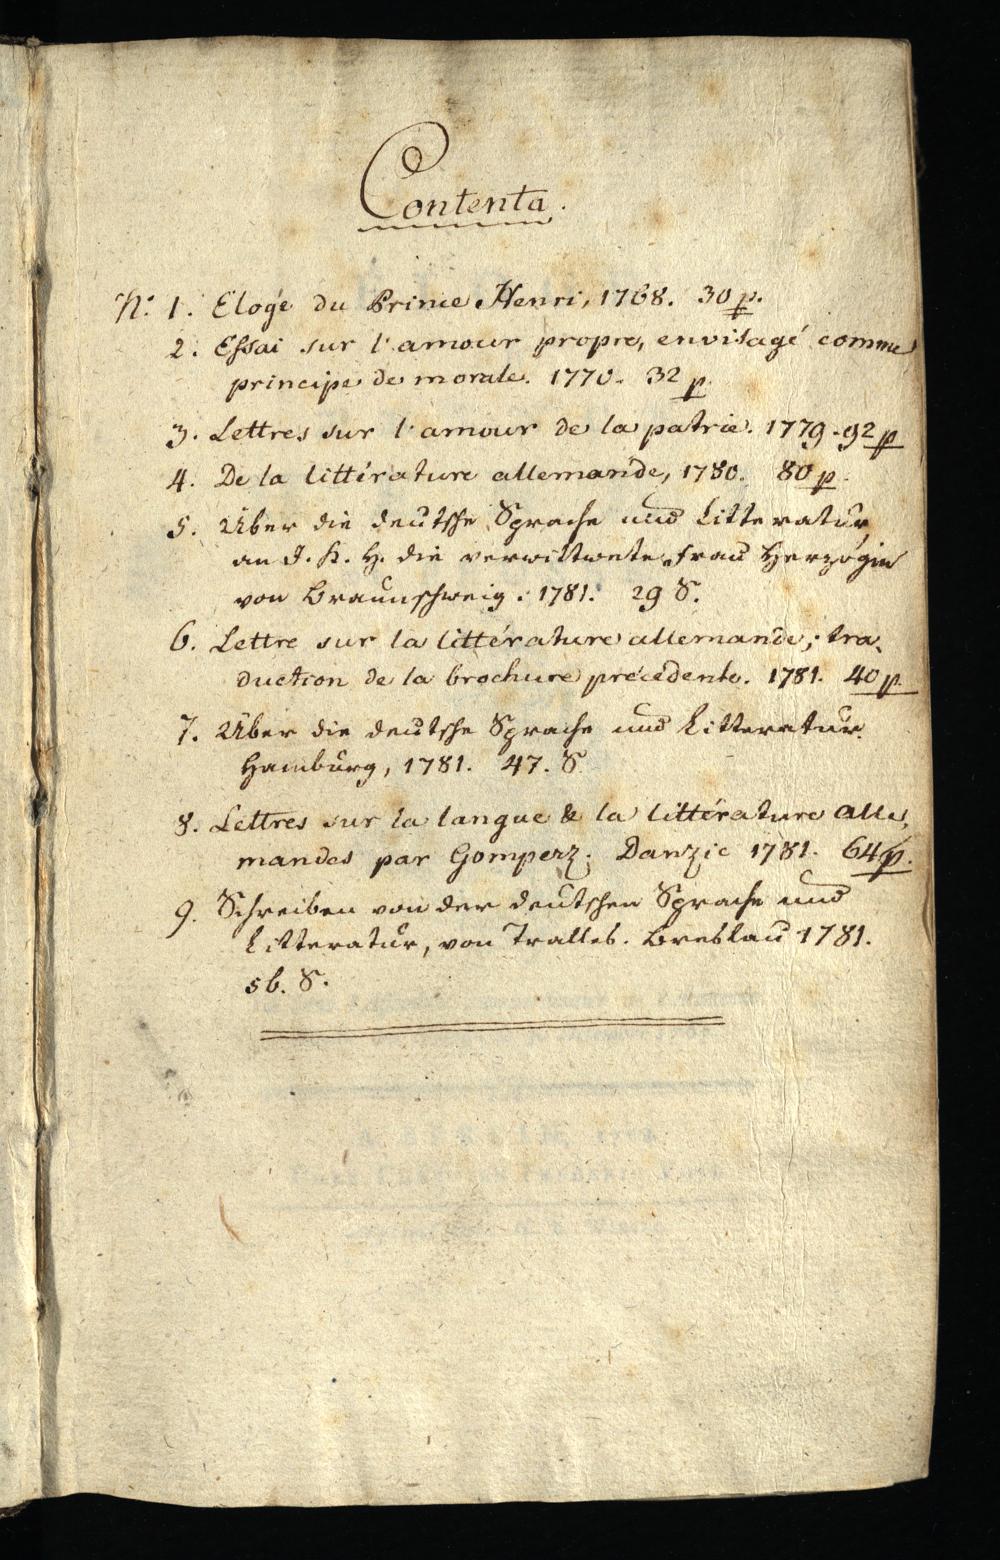 Contenta.
N: 1. Eloge du Prince Henri, 1768. 30 p.
2. Essai sur l'amour propre, envisagé comme
principe de morale. 1770. 32 p.
3. Lettres sur l'amour de la patrie. 1779. 92 p
4. De la littérature allemande, 1780. 80 p.
5. Über die deutsche Sprache und Litteratur,
an I. K. H. die verwittwete Frau Herzogin
von Braunschweig. 1781. 29 S.
6. Lettre sur la littérature allemande; tra-
duction de la brochure précédente. 1781. 40 p.
7. Über die deutsche Sprache und Litteratur.
Hamburg, 1781. 47. S
8. Lettres sur la langue & la littérature alle-
mandes par Gomperz. Danzic 1781. 64 p.
9. Schreiben von der deutschen Sprache und
Litteratur, von Tralles. Breslau 1781.
56. S.